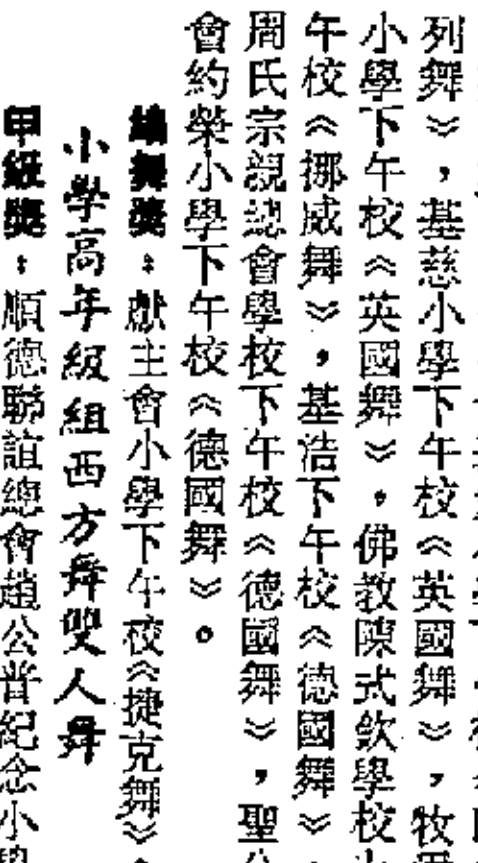 列舞》，基慈小學下午校《英國舞》，牧
小學下午校《英國舞》，佛教陳式欽學校
午校《挪威舞》，基浩下午校《德國舞》，
周氏宗親總會學校下午校《德國舞》，聖公
會約榮小學下午校《德國舞》。
編舞獎：獻主會小學下午校《捷克舞》。
小學高年級組西方舞雙人舞
甲級獎：順德聯誼總會趙公普紀念小學